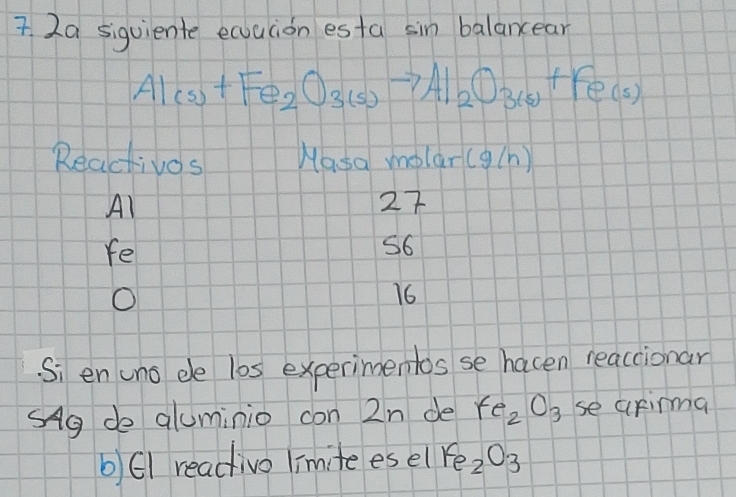 7. La siguiente ecuación esta sin balancear
Al(s) + Fe₂O₃(s) → Al₂O₃(s) + Fe(s)
Reactivos Masa molar (g/n)
Al 27
Fe 56
O 16
Si en uno de los experimentos se hacen reaccionar
54g de aluminio con 2n de Fe₂O₃ se afirma
b) El reactivo limite es el Fe₂O₃